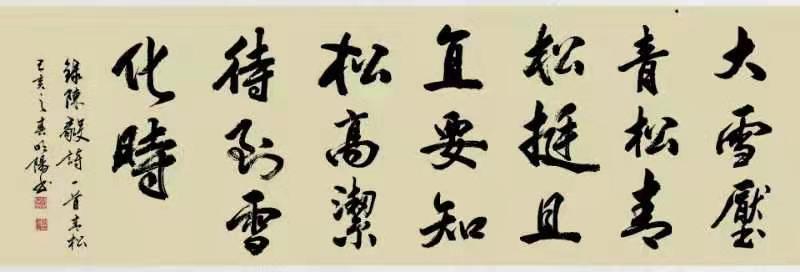 大雪壓
青松青
松挺且
直要知
松高潔
待到雪
化時
錄陳毅詩一首青松
己亥之春明陽书